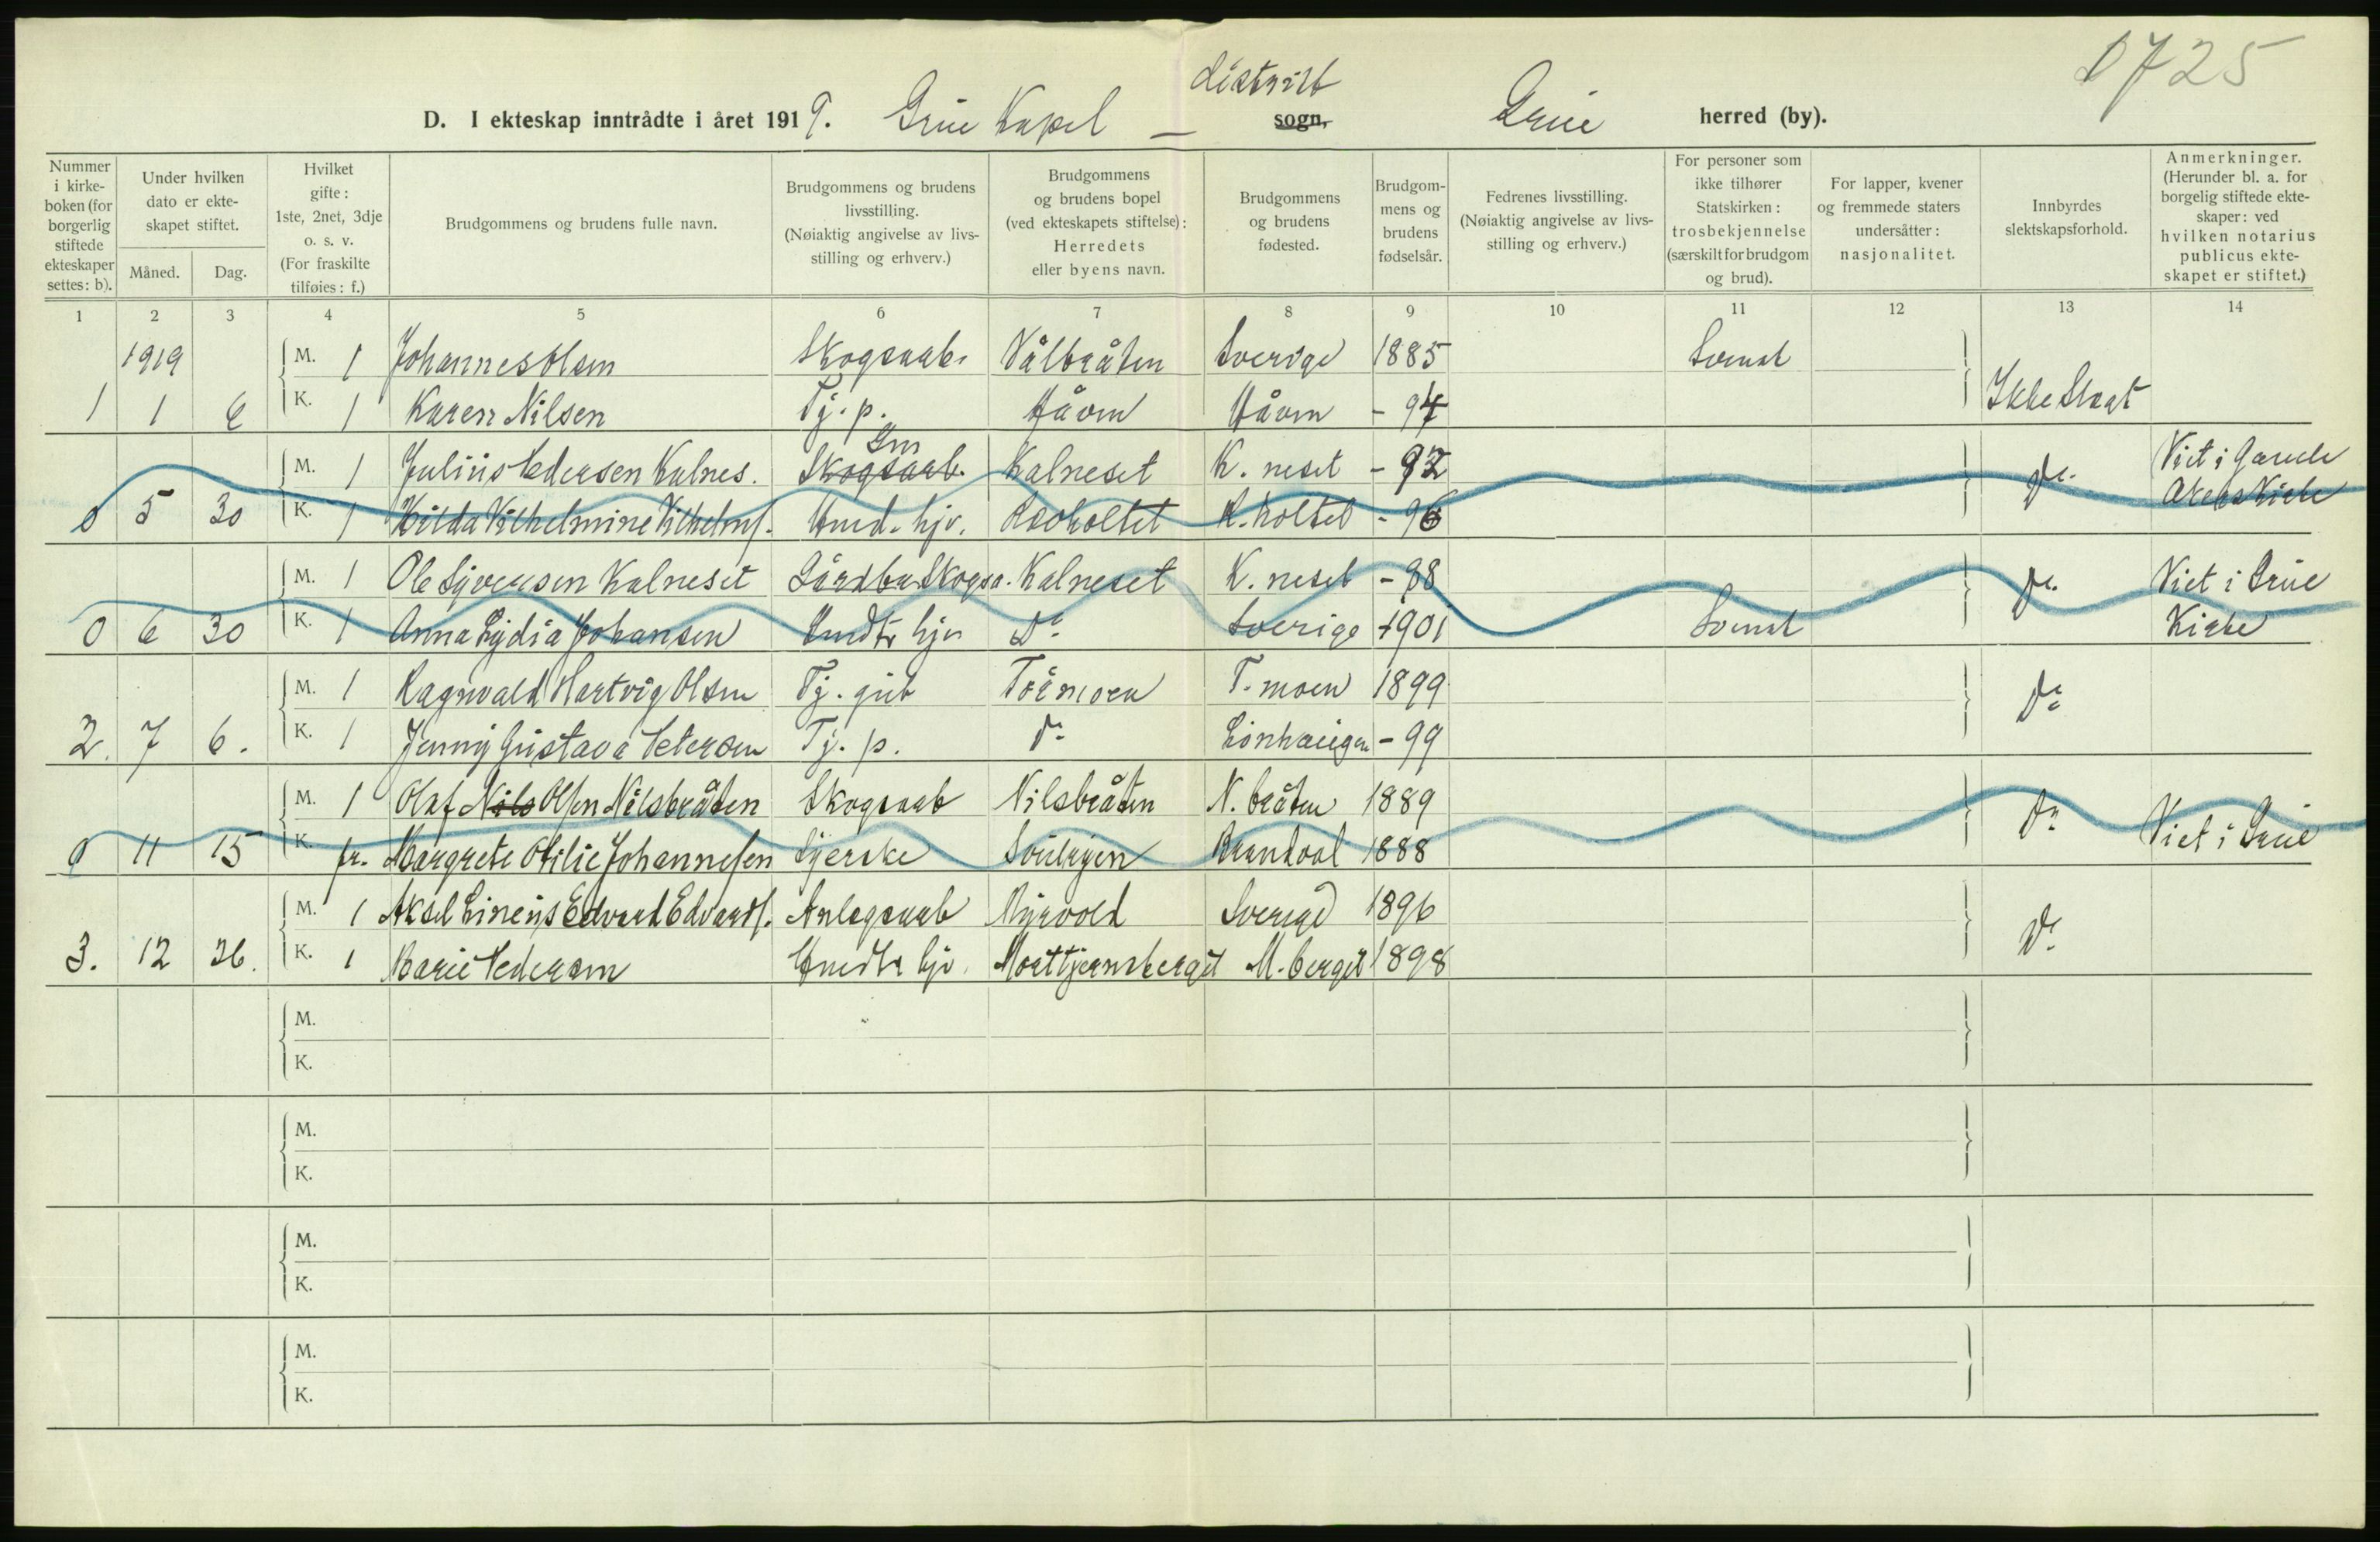 1725
D. I ekteskap inntrådte i året 1919. Grue Kapel – distrikt sogn, Grue herred (by).
Nummer i kirkeboken (for borgerlig stiftede ekteskaper settes: b).
Under hvilken dato er ekteskapet stiftet.
Måned.
Dag.
Hvilket gifte: 1ste, 2net, 3dje o. s. v. (For fraskilte tilføies: f.)
Brudgommens og brudens fulle navn.
Brudgommens og brudens livsstilling. (Nøiaktig angivelse av livsstilling og erhverv.)
Brudgommens og brudens bopel (ved ekteskapets stiftelse): Herredets eller byens navn.
Brudgommens og brudens fødested.
Brudgommens og brudens fødselsår.
Fedrenes livsstilling. (Nøiaktig angivelse av livsstilling og erhverv.)
For personer som ikke tilhører Statskirken: trosbekjennelse (særskilt for brudgom og brud).
For lapper, kvener og fremmede staters undersåtter: nasjonalitet.
Innbyrdes slektskapsforhold.
Anmerkninger. (Herunder bl. a. for borgelig stiftede ekteskaper: ved hvilken notarius publicus ekteskapet er stiftet.)
1 2 3 4 5 6 7 8 9 10 11 12 13 14
1919 M. 1 Johannes Olsen Skogsarb. Vålbråten Sverige 1885 Svensk
1 1 6 K. 1 Karen Nilsen Tj. p. Håven Håven - 94 Ikke Slegt
M. 1 Julius Pedersen Kalnes. Skogsarb. Gm Kalneset K. neset - 92 Do. Viet i Gamle
0 5 30 K. 1 Hilda Vilhelmine Vilhelms. Hused. hjv. K. holtet - 96 Akers Kirke
M. 1 Ole Syversen Kalneset Gårdbr Skogsa. Kalneset K. neset - 88 Do. Viet i Grue
0 6 30 K. 1 Anna Lydia Johansen Husdtr hjv Do Sverige 1901 Svensk Kirke
M. 1 Ragnvald Hartvig Olsen Tj. gut Tørmoen T. moen 1899 Do
2. 7 6. K. 1 Jenny Gustava Petersen Tj. p. Do Lønhaugen - 99
M. 1 Olaf Nils Olsen Nilsbråten Skogsarb Nilsbråten N. bråten 1889 Do Viet i Grue
0 11 15 K. fr. Margrete Otilie Johannesen Syerske Brandval 1888
M. 1 Aksel Lineus Edvard Edvards. Anlegsarb Myrvold Sverige 1896 Do
3. 12 26. K. 1 Marie Pedersen Husdtr hjv. Morttjernsberget M. berget 1898
M.
K.
M.
K.
M.
K.
M.
K.